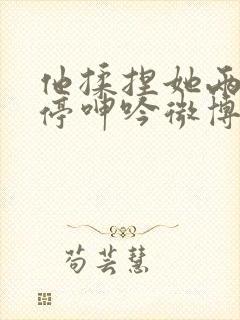 他揉捏她两
停呻吟微博
苟芸慧